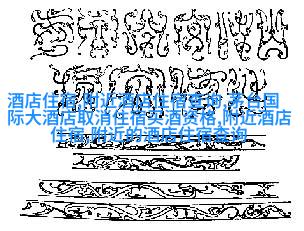 酒店住宿,附近酒店住宿查询,茅台国
际大酒店取消住宿买酒资格,附近酒店
住宿,附近的酒店住宿查询